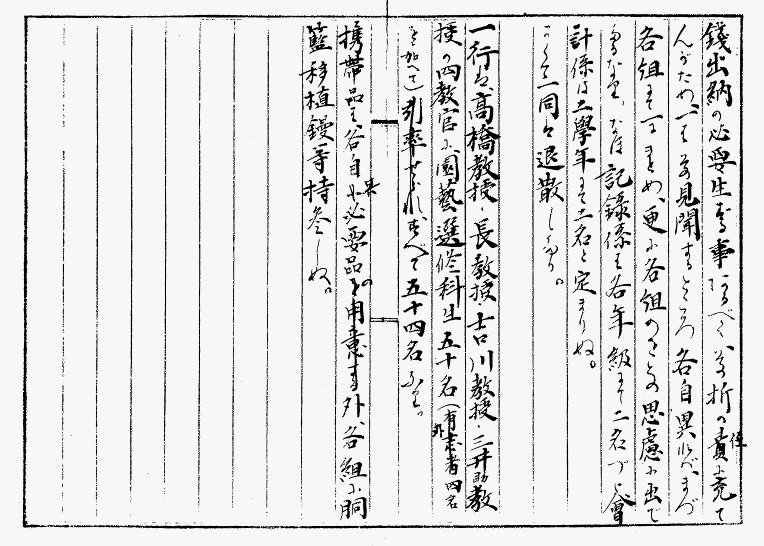 錢出納の必要生ずる事あるべく、其折の責任を完で
んがため、一は其見聞するところ各自異れば、まづ
各組にて一にまとめ、更に各組のまとめの思慮に出で
しなり。なほ記録係は各年級にて二名づゝ會
計係は二學年にて二名と定まりぬ。
かくて一同は退散しけり。
一行は、高橋教授・長教授・吉川教授・三井助教
授の四教官に園藝選修科生五十名(有志者四名
を加へて)引率せられ、すべて五十四名なり。
携帯品は谷自に必要品を用意する外、各組に胴
籃移植鏝等持参しぬ。